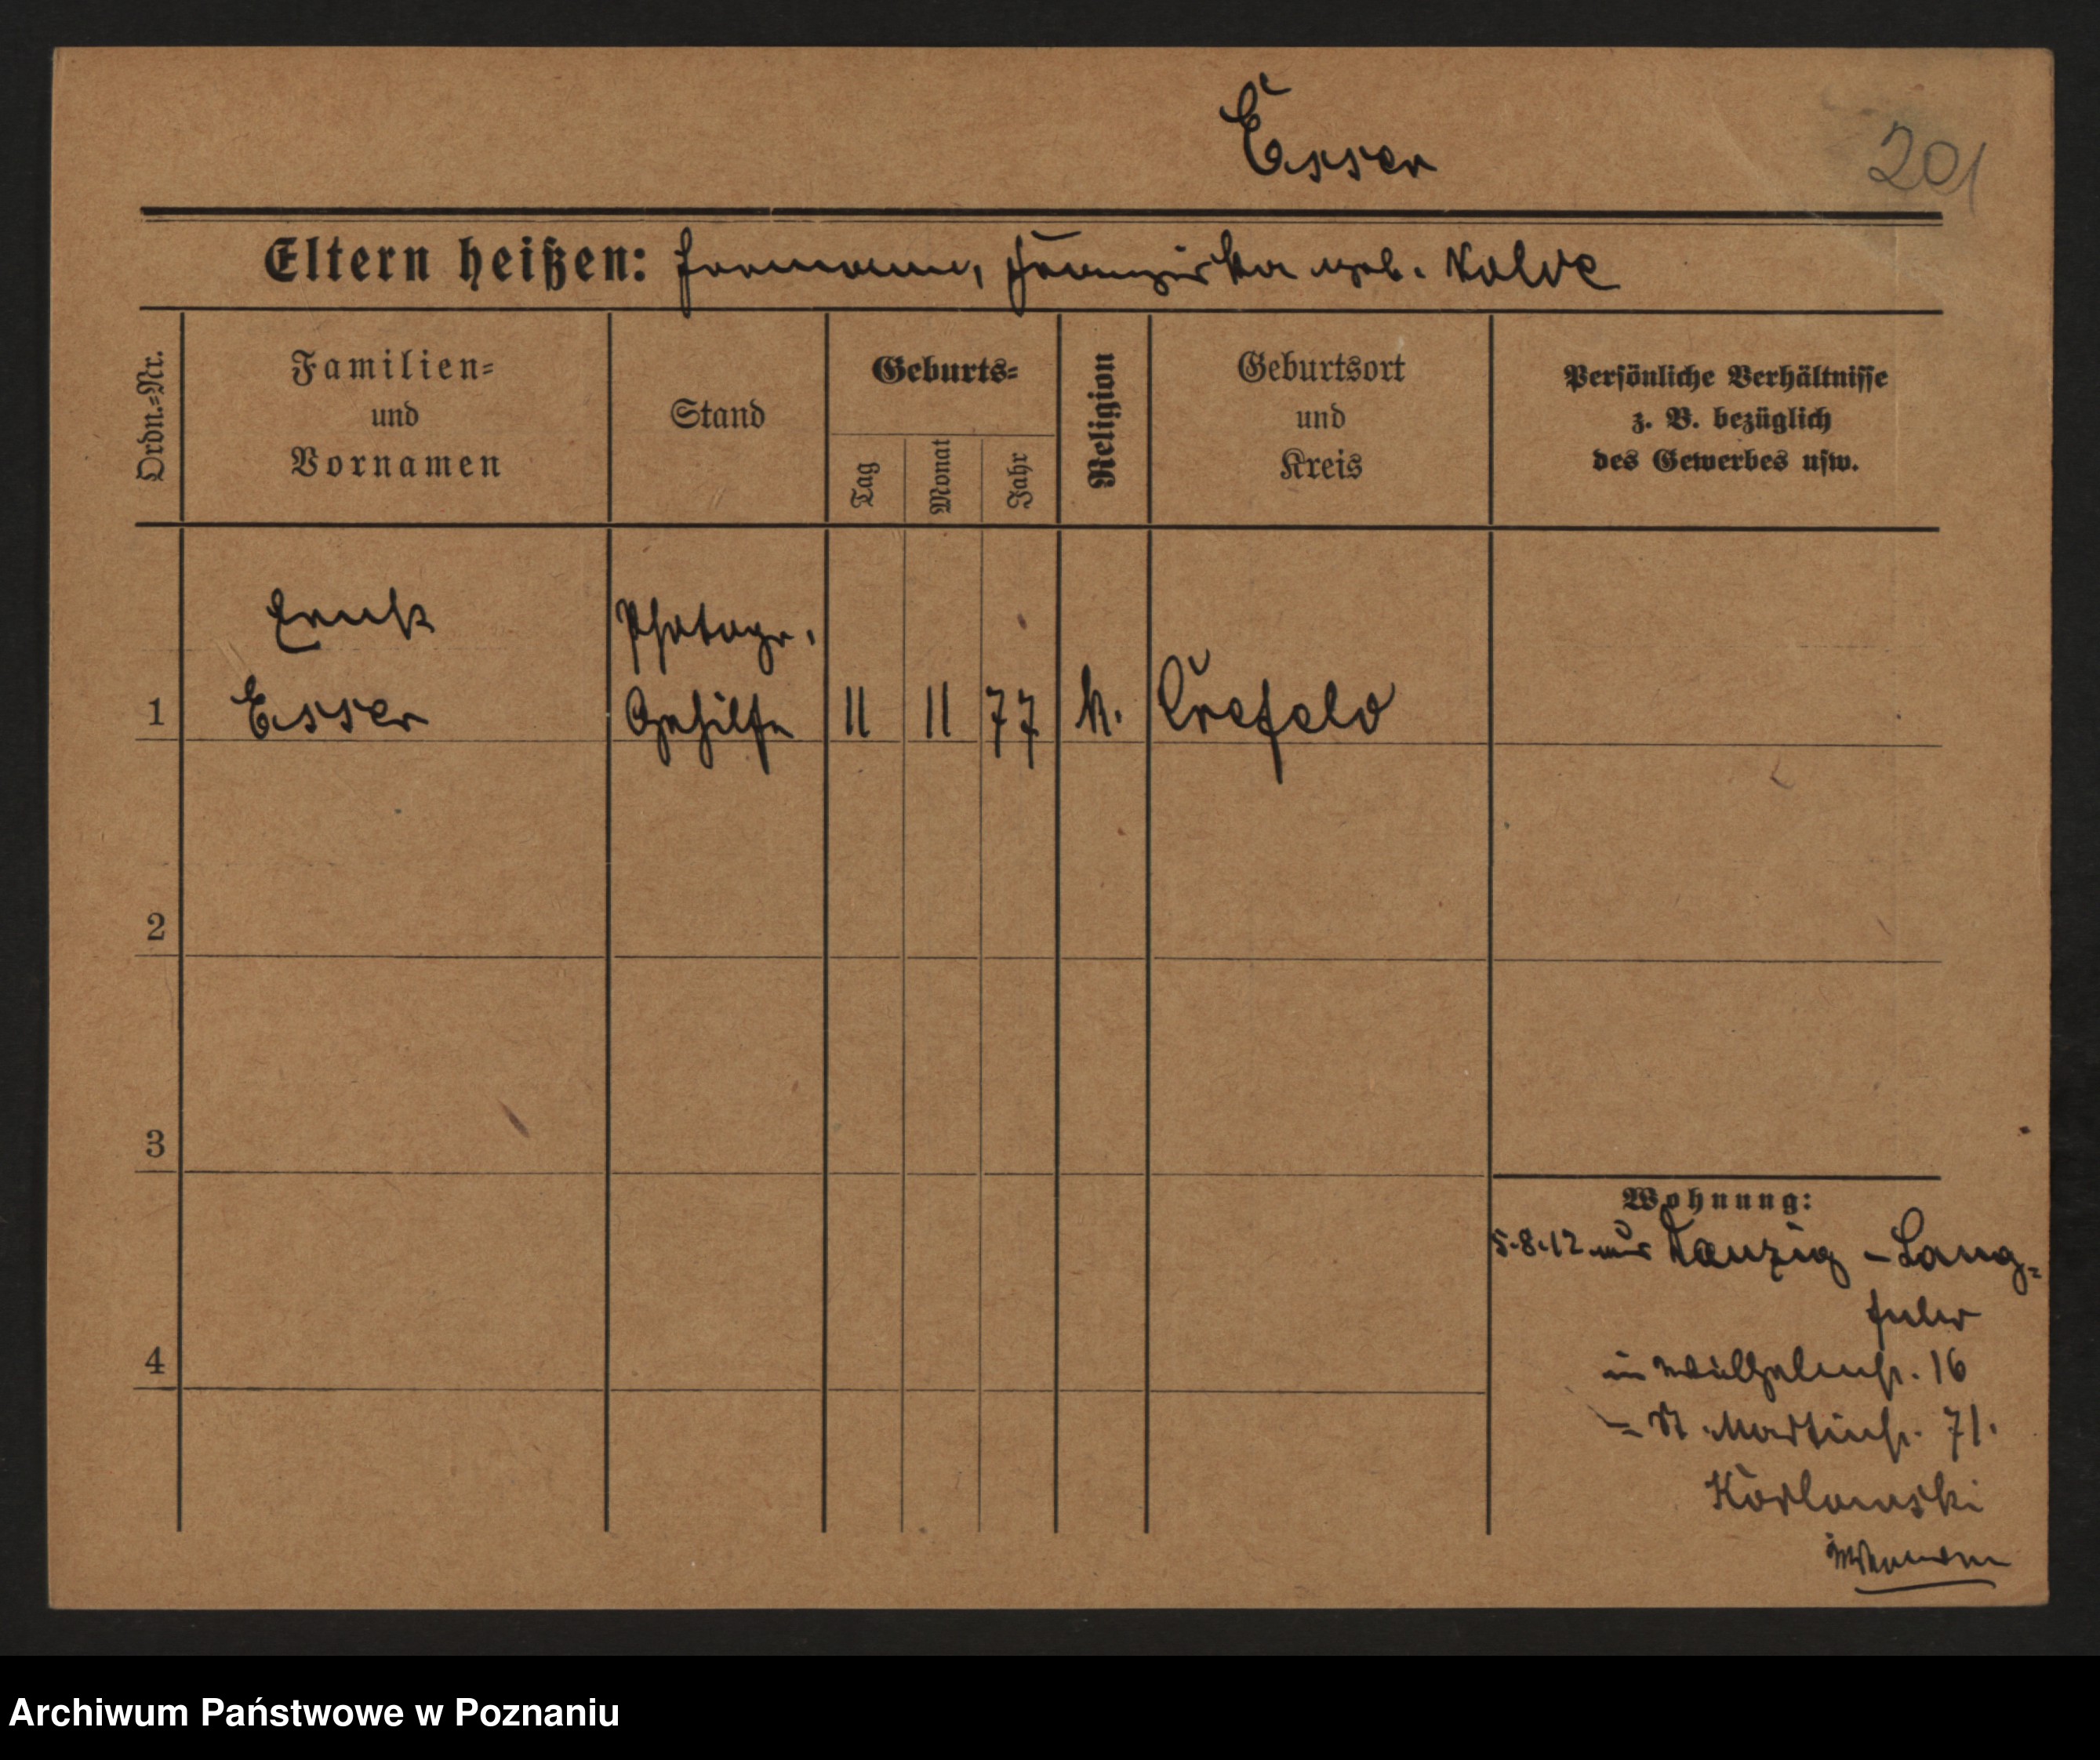 Esser
201
Eltern heißen: Hermann, Franziska geb. Nolde
Ordn.=Nr.
Familien=
und
Vornamen
Stand
Geburts=
Tag
Monat
Jahr
Religion
Geburtsort
und
Kreis
Persönliche Verhältnisse
z. B. bezüglich
des Gewerbes usw.
Ernst
Photogr.
1 Esser Gehilfe 11 11 77 k. Crefeld
2
3
4
Wohnung:
5.8.12 aus Danzig - Lang=
fuhr
in Wilhelmstr. 16
= St. Martinstr. 71.
Archiwum Państwowe w Poznaniu